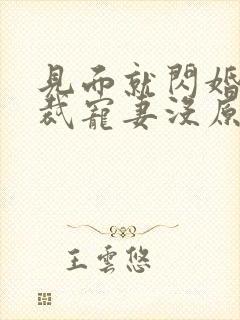 見面就閃婚
裁寵妻沒原
王雲悠